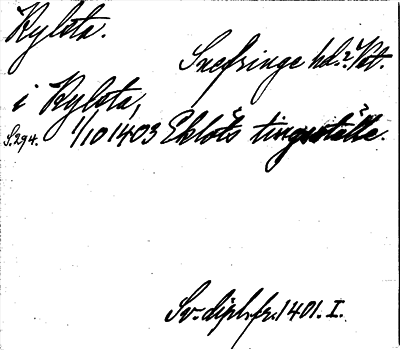 Kylsta.
Snefringe hd.? Vst.
i Kylsta,
S. 294. 1/10 1403 Eklöts tingsställe.
Sv. dipl. fr. 1401. I.